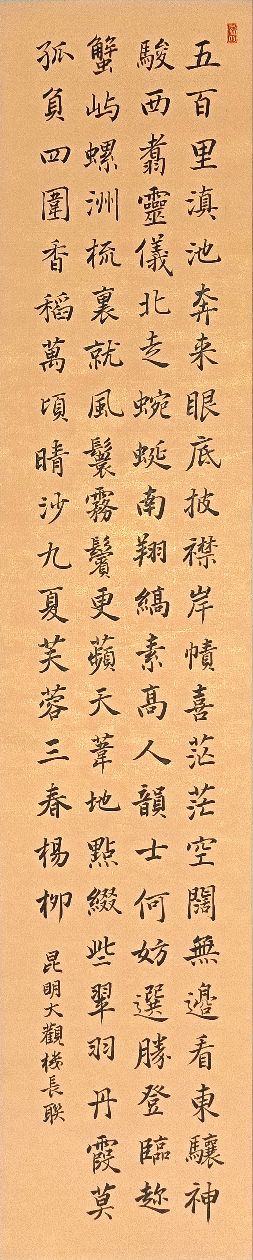 五百里滇池奔来眼底披襟岸幘喜茫茫空闊無邊看東驤神
駿西翥靈儀北走蜿蜒南翔縞素高人韻士何妨選勝登臨趂
蟹屿螺洲梳裏就風鬟霧鬢更蘋天葦地點綴些翠羽丹霞莫
孤負四圍香稻萬頃晴沙九夏芙蓉三春楊柳
昆明大觀楼長联